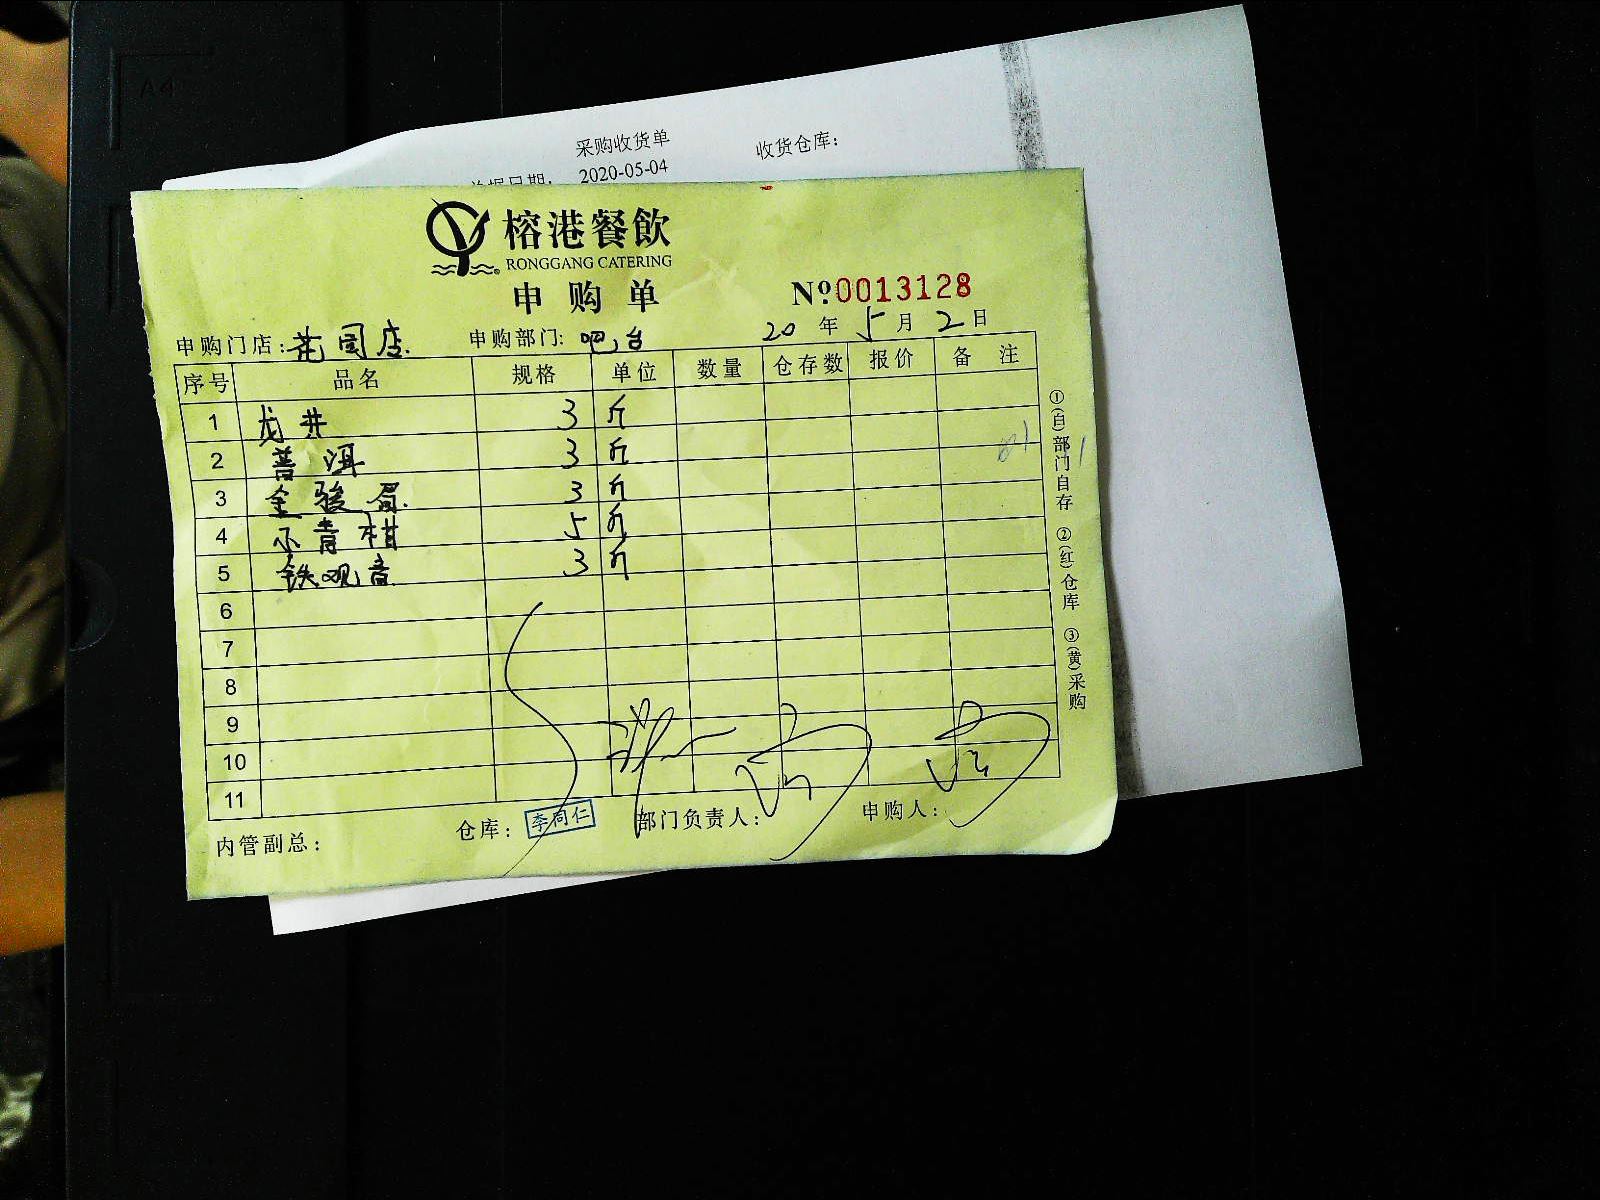 A4
采购收货单 收货仓库：
单据日期： 2020-05-04
榕港餐飲
RONGGANG CATERING
申购单 Nº0013128
申购门店：花园店. 申购部门：吧台 20年5月2日
序号 品名 规格 单位 数量 仓存数 报价 备注
1 龙井 3 斤
2 普洱 3 斤
3 金骏眉. 3 斤
4 小青柑 5 斤
5 铁观音 3 斤
6
7
8
9
10
11
内管副总： 仓库：李同仁 部门负责人： 申购人：
①(白)部门自存 ②(红)仓库 ③(黄)采购